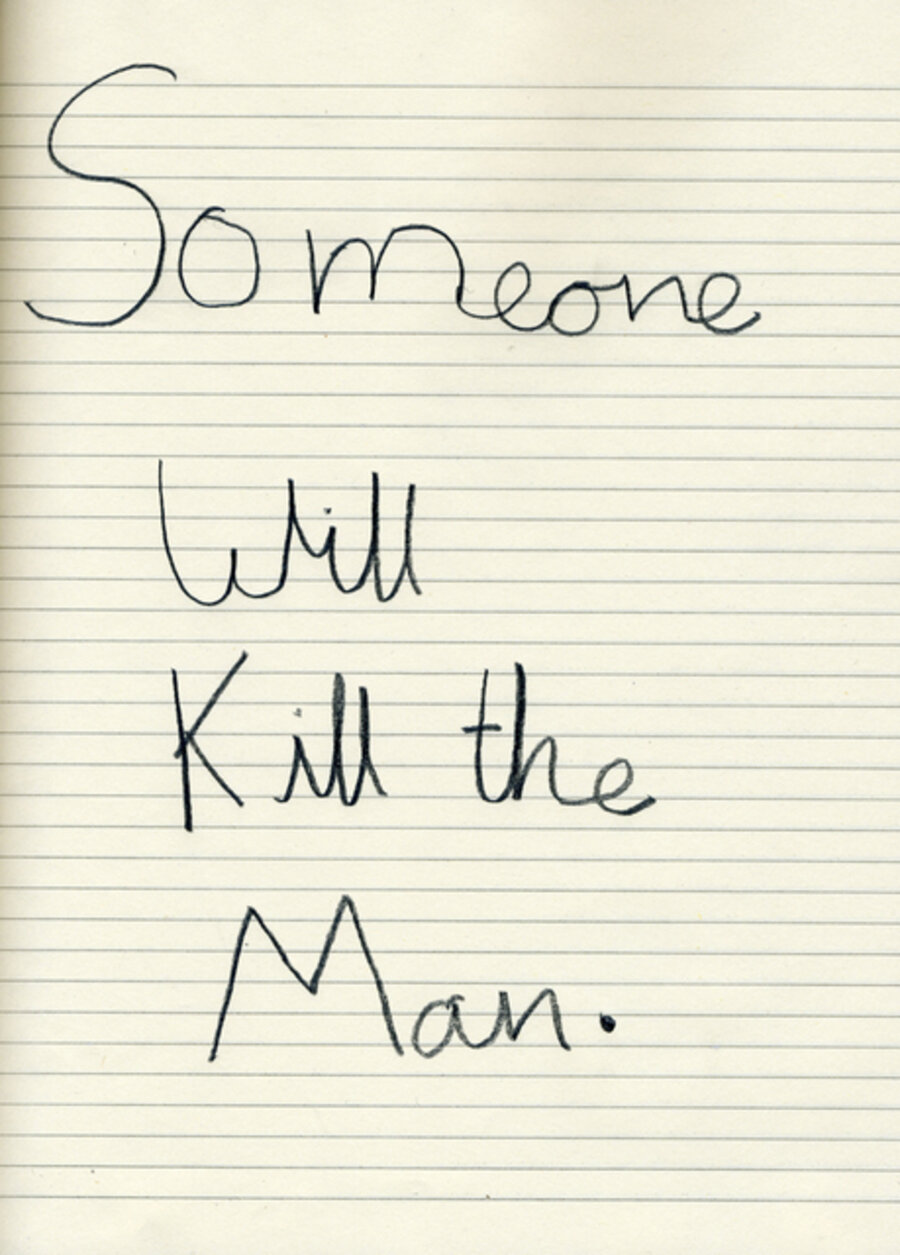 Someone
Will
Kill the
Man.